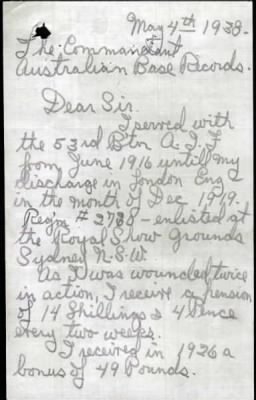 May 4th 1938.
The Commandant
Australian Base Records.
Dear Sir.
I served with
the 53rd Btn A.I.F
from June 1916 untill my
discharge in London Eng-
in the month of Dec 1919.
Regm # 2738 - enlisted at
the Royal Show Grounds
Sydney N.S.W.
As I was wounded twice
in action, I receive a pension
of 14 Shillings & 4 Pence
every two weeks.
I received in 1926 a
bonus of 49 Pounds.